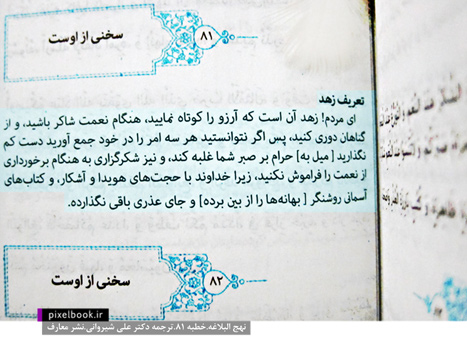 ۸۱
سخنی از اوست
تعریف زهد
ای مردم! زهد آن است که آرزو را کوتاه نمایید، هنگام نعمت شاکر باشید، و از
گناهان دوری کنید، پس اگر نتوانستید هر سه امر را در خود جمع آورید دست کم
نگذارید [میل به] حرام بر صبر شما غلبه کند، و نیز شکرگزاری به هنگام برخورداری
از نعمت را فراموش نکنید، زیرا خداوند با حجت‌های هویدا و آشکار، و کتاب‌های
آسمانی روشنگر [بهانه‌ها را از بین برده] و جای عذری باقی نگذارده.
۸۲
سخنی از اوست
pixelbook.ir
نهج البلاغه.خطبه ۸۱.ترجمه دکتر علی شیروانی.نشر معارف